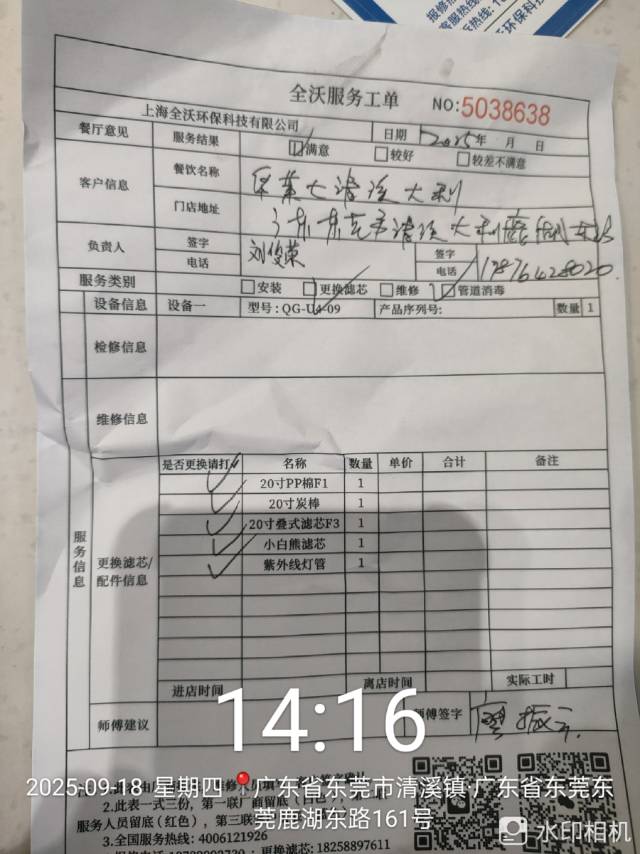 全沃服务工单 NO:5038638
上海全沃环保科技有限公司 日期 2025年 月 日
餐厅意见 服务结果 满意 较好 较差不满意
客户信息 餐饮名称
门店地址
负责人 签字 刘俊荣 签字
电话 电话 17876428020
服务类别 安装 更换滤芯 维修 管道消毒
设备信息 设备一 型号:QG-U4-09 产品序列号: 数量 1
检修信息
维修信息
服务信息
更换滤芯/配件信息
是否更换请打√ 名称 数量 单价 合计 备注
20寸PP棉F1 1
20寸炭棒 1
20寸叠式滤芯F3 1
小白熊滤芯 1
紫外线灯管 1
进店时间 离店时间 实际工时
师傅建议 师傅签字
14:16
2025-09-18 星期四 广东省东莞市清溪镇·广东省东莞东
莞鹿湖东路161号
2.此表一式三份，第一联厂商留底
服务人员留底(红色)，第三联
3.全国服务热线: 4006121926
18258897611
水印相机